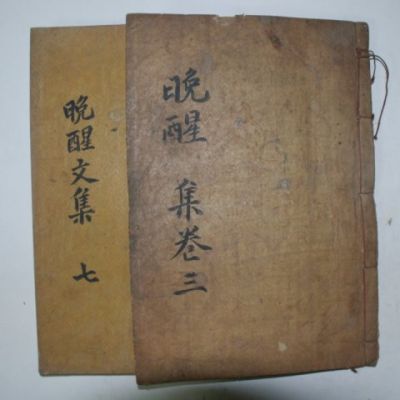 晩醒集卷三
晩醒文集 七